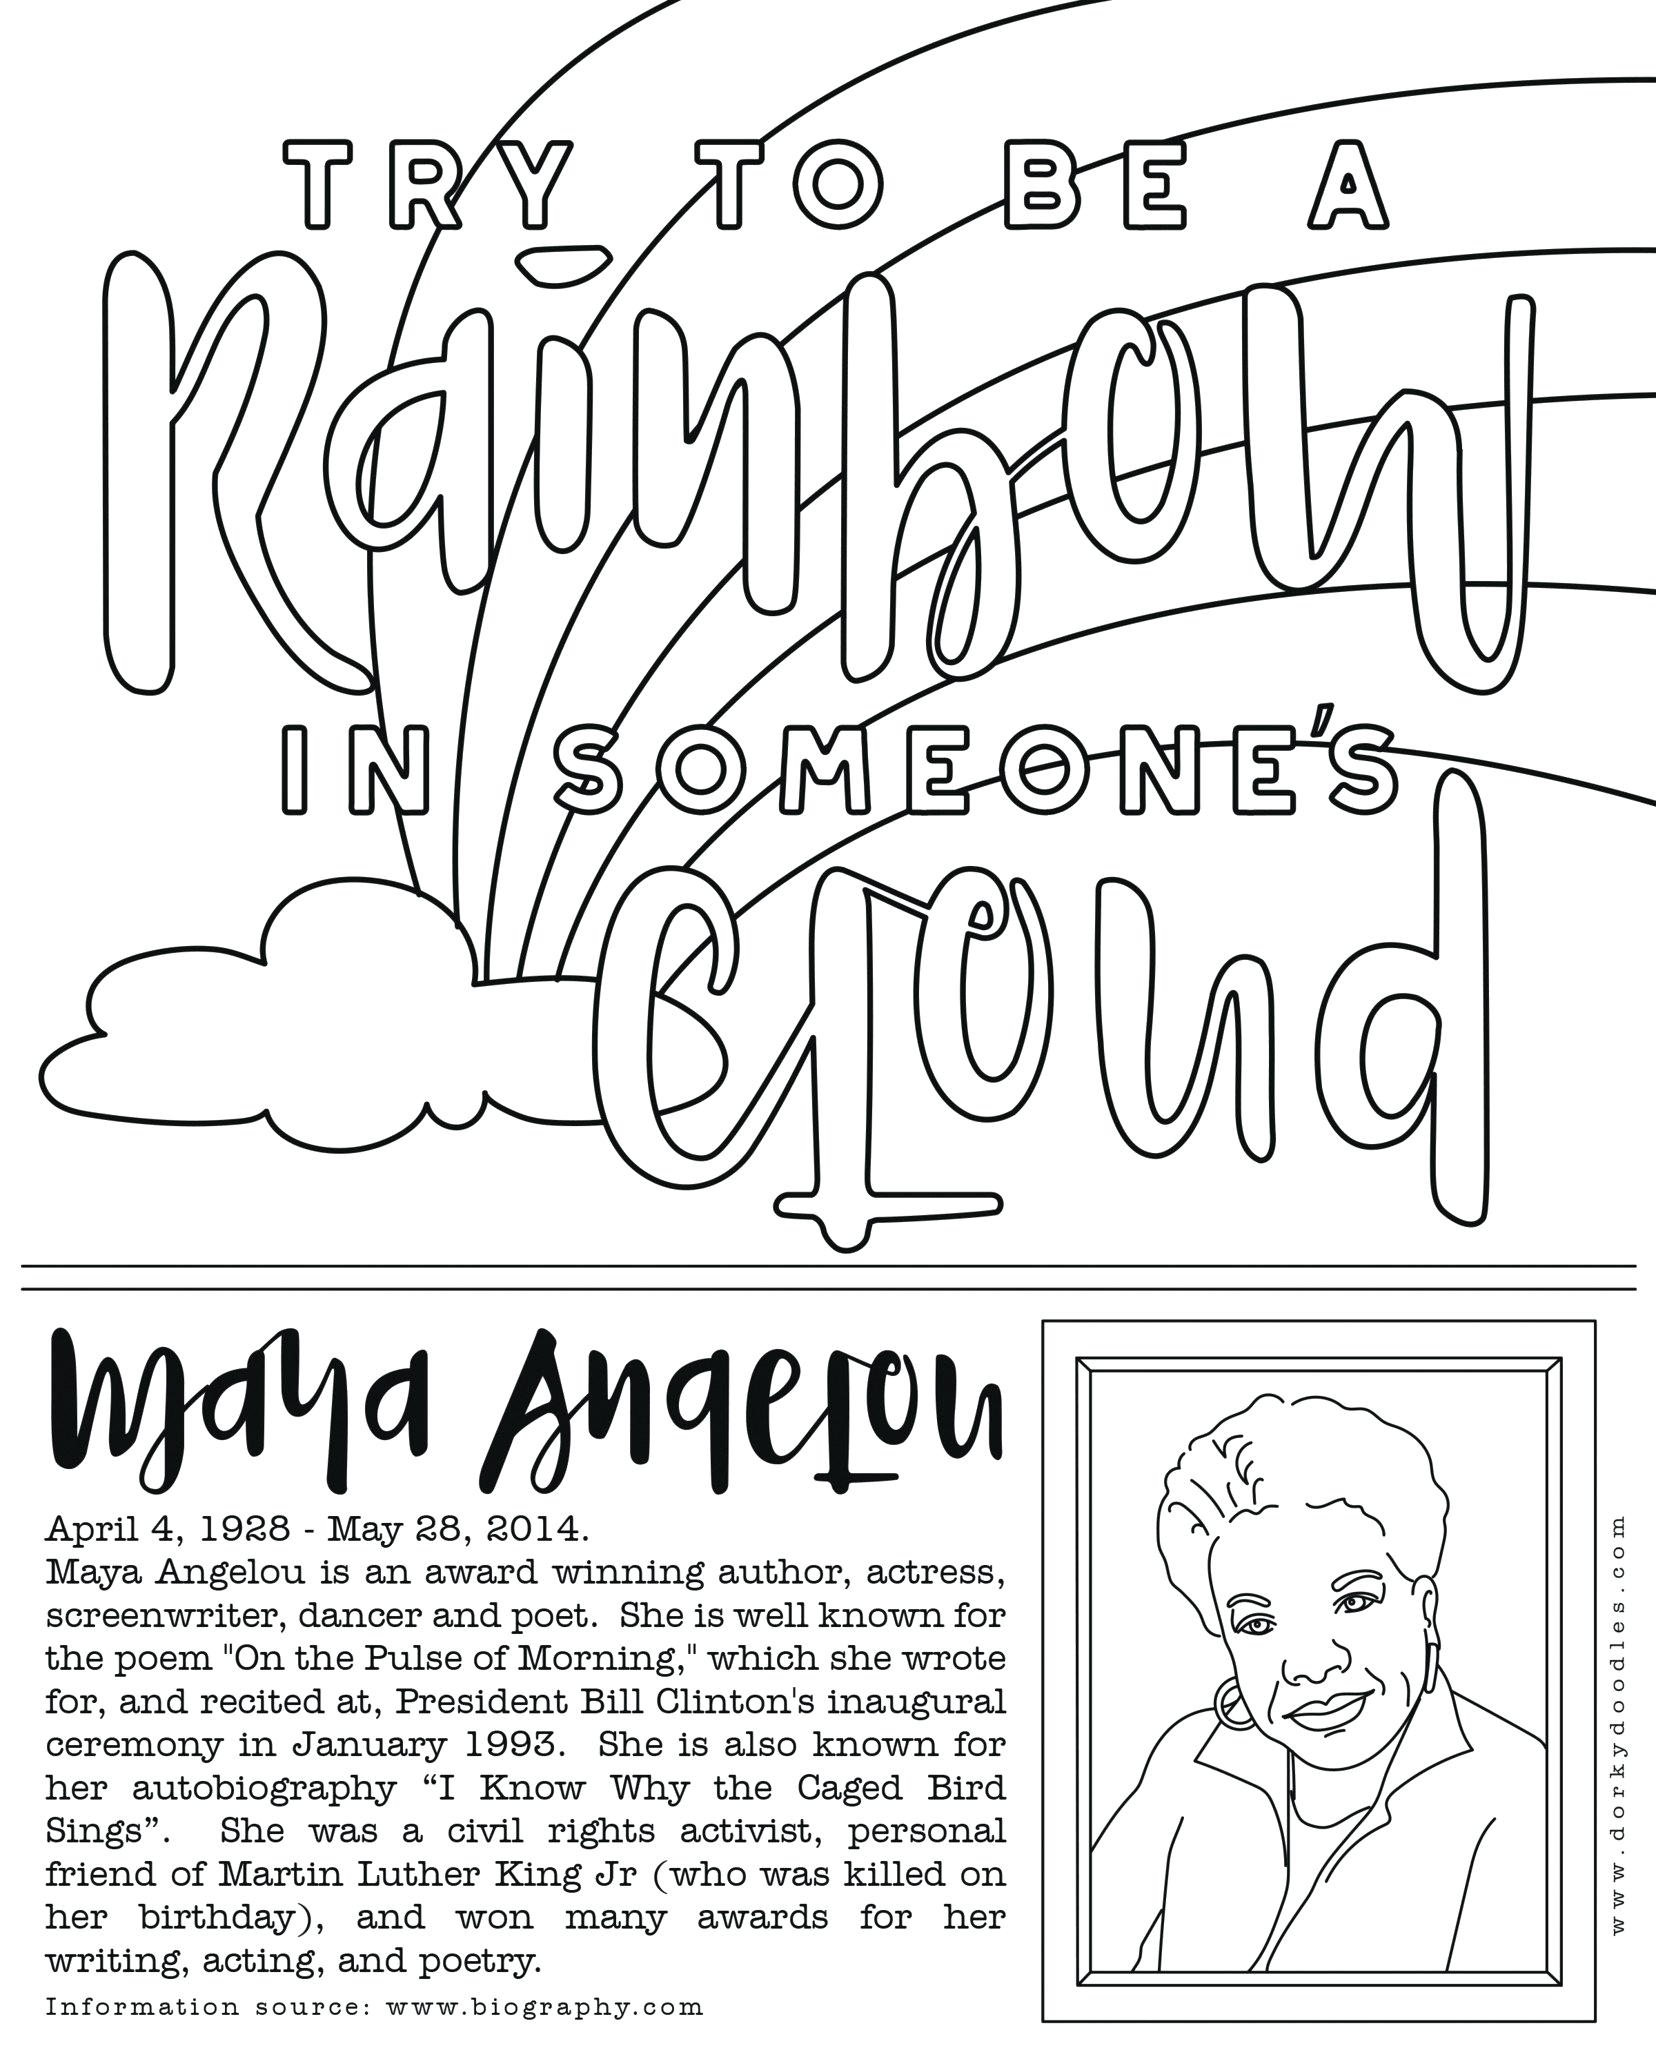 TRY TO BE A
Rainbow
IN SOMEONE'S
Cloud
Maya Angelou
April 4, 1928 - May 28, 2014.
Maya Angelou is an award winning author, actress,
screenwriter, dancer and poet. She is well known for
the poem "On the Pulse of Morning," which she wrote
for, and recited at, President Bill Clinton's inaugural
ceremony in January 1993. She is also known for
her autobiography “I Know Why the Caged Bird
Sings”. She was a civil rights activist, personal
friend of Martin Luther King Jr (who was killed on
her birthday), and won many awards for her
writing, acting, and poetry.
Information source: www.biography.com
www.dorkydoodles.com